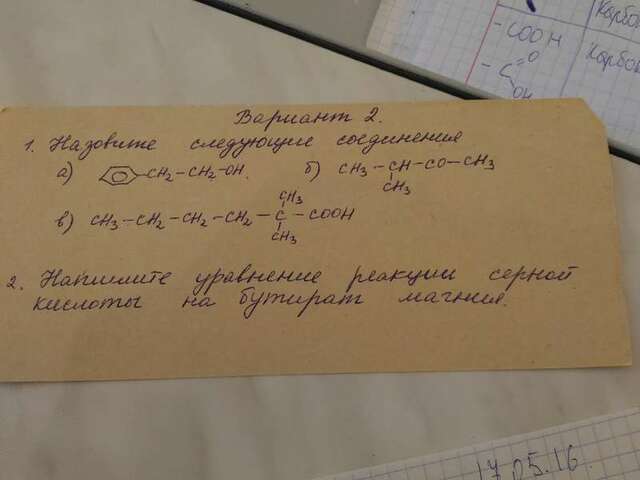 Карбо
-COOH
Карбо
- C=O
OH
Вариант 2.
1. Назовите следующие соединения
а) -CH2-CH2-OH. б) CH3-CH-CO-CH3
CH3
CH3
в) CH3-CH2-CH2-CH2-C-COOH
CH3
2. Напишите уравнение реакции серной
кислоты на бутират магния.
17.05.16.